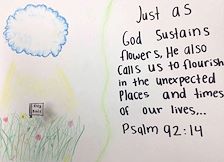 Just as
God sustains
flowers, He also
calls us to flourish
in the unexpected
places and times
of our lives...
Psalm 92:14